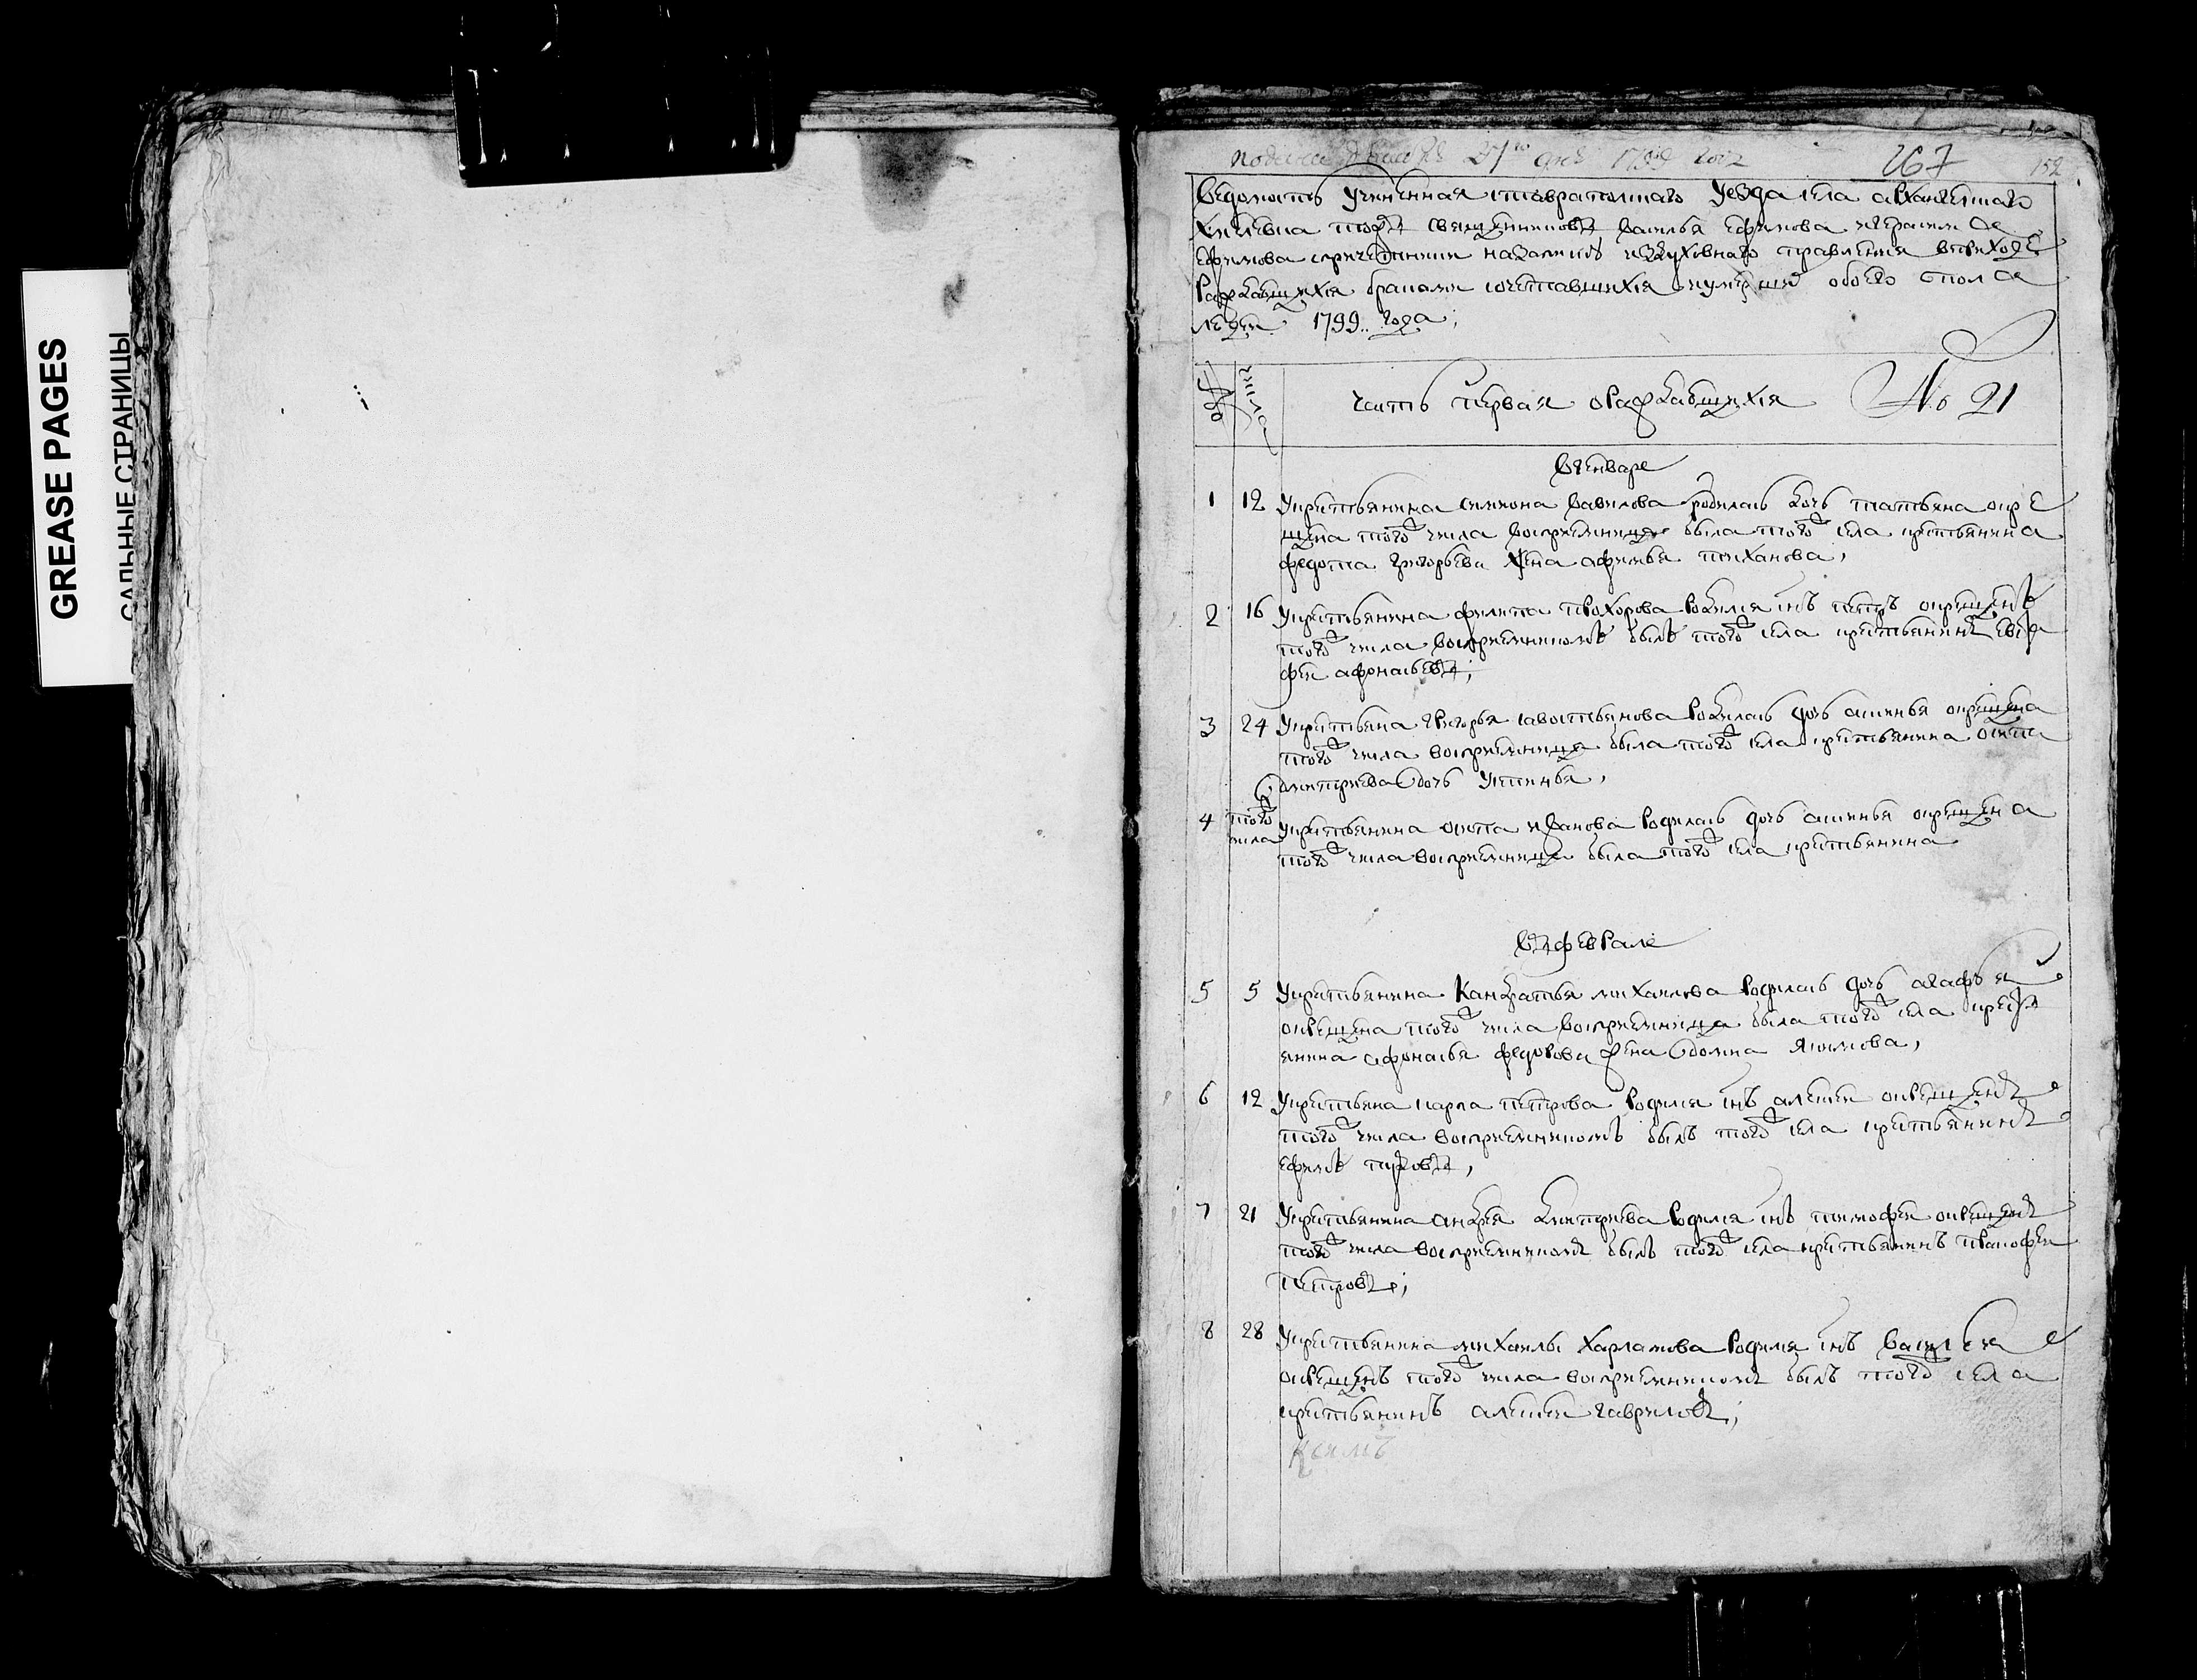 GREASE PAGES
САЛЬНЫЕ СТРАНИЦЫ
27 дня 1799 года
267
152
Ведомость учиненная ставрапольскаго уезда села архангельскаго
хмелевка тожъ священниковъ василья ефимова
ефимова спричетники издуховнаго правления вприходе
рождающихся браками сочетавшихся обоего пола
людей 1799. года;
числа
часть первая орождающихся No 21
вянваре
1 12 укрестьянина симиона вавилова родилась дочь татьяна окре
щена того числа восприемницею была того села крестьянина
федота григорьева жена афимья тиханова,
2 16 укрестьянина филипа прохорова родился снъ петръ окрещенъ
того числа восприемникомъ былъ того села крестьянинъ
афонасьевъ;
3 24 укрестьяна григорья савостьянова родилась дочь аксинья окрещена
того числа восприемница была того села крестьянина осипа
дмитриева дочь устинья,
4 того числа укрестьянина осипа иванова родилась дочь аксинья окрещена
того числа восприемница была того села крестьянина
въ феврале
5 5 укрестьянина кандратья михаилова родилась дочь агафья
окрещена того числа восприемница была того села крест
янина афонасья федорова жена домна якимова,
6 12 укрестьяна карпа петрова родился снъ алексей окрещенъ
того числа восприемникомъ былъ того села крестьянинъ
ефимъ
7 21 укрестьянина андрея дмитриева родился снъ тимофеи окрещенъ
того числа восприемникомъ былъ того села крестьянинъ пракофеи
петровъ;
8 28 укрестьянина михаилы харламова родился снъ василеи
окрещенъ того числа восприемникомъ былъ того села
крестьянинъ алексеи гавриловъ;